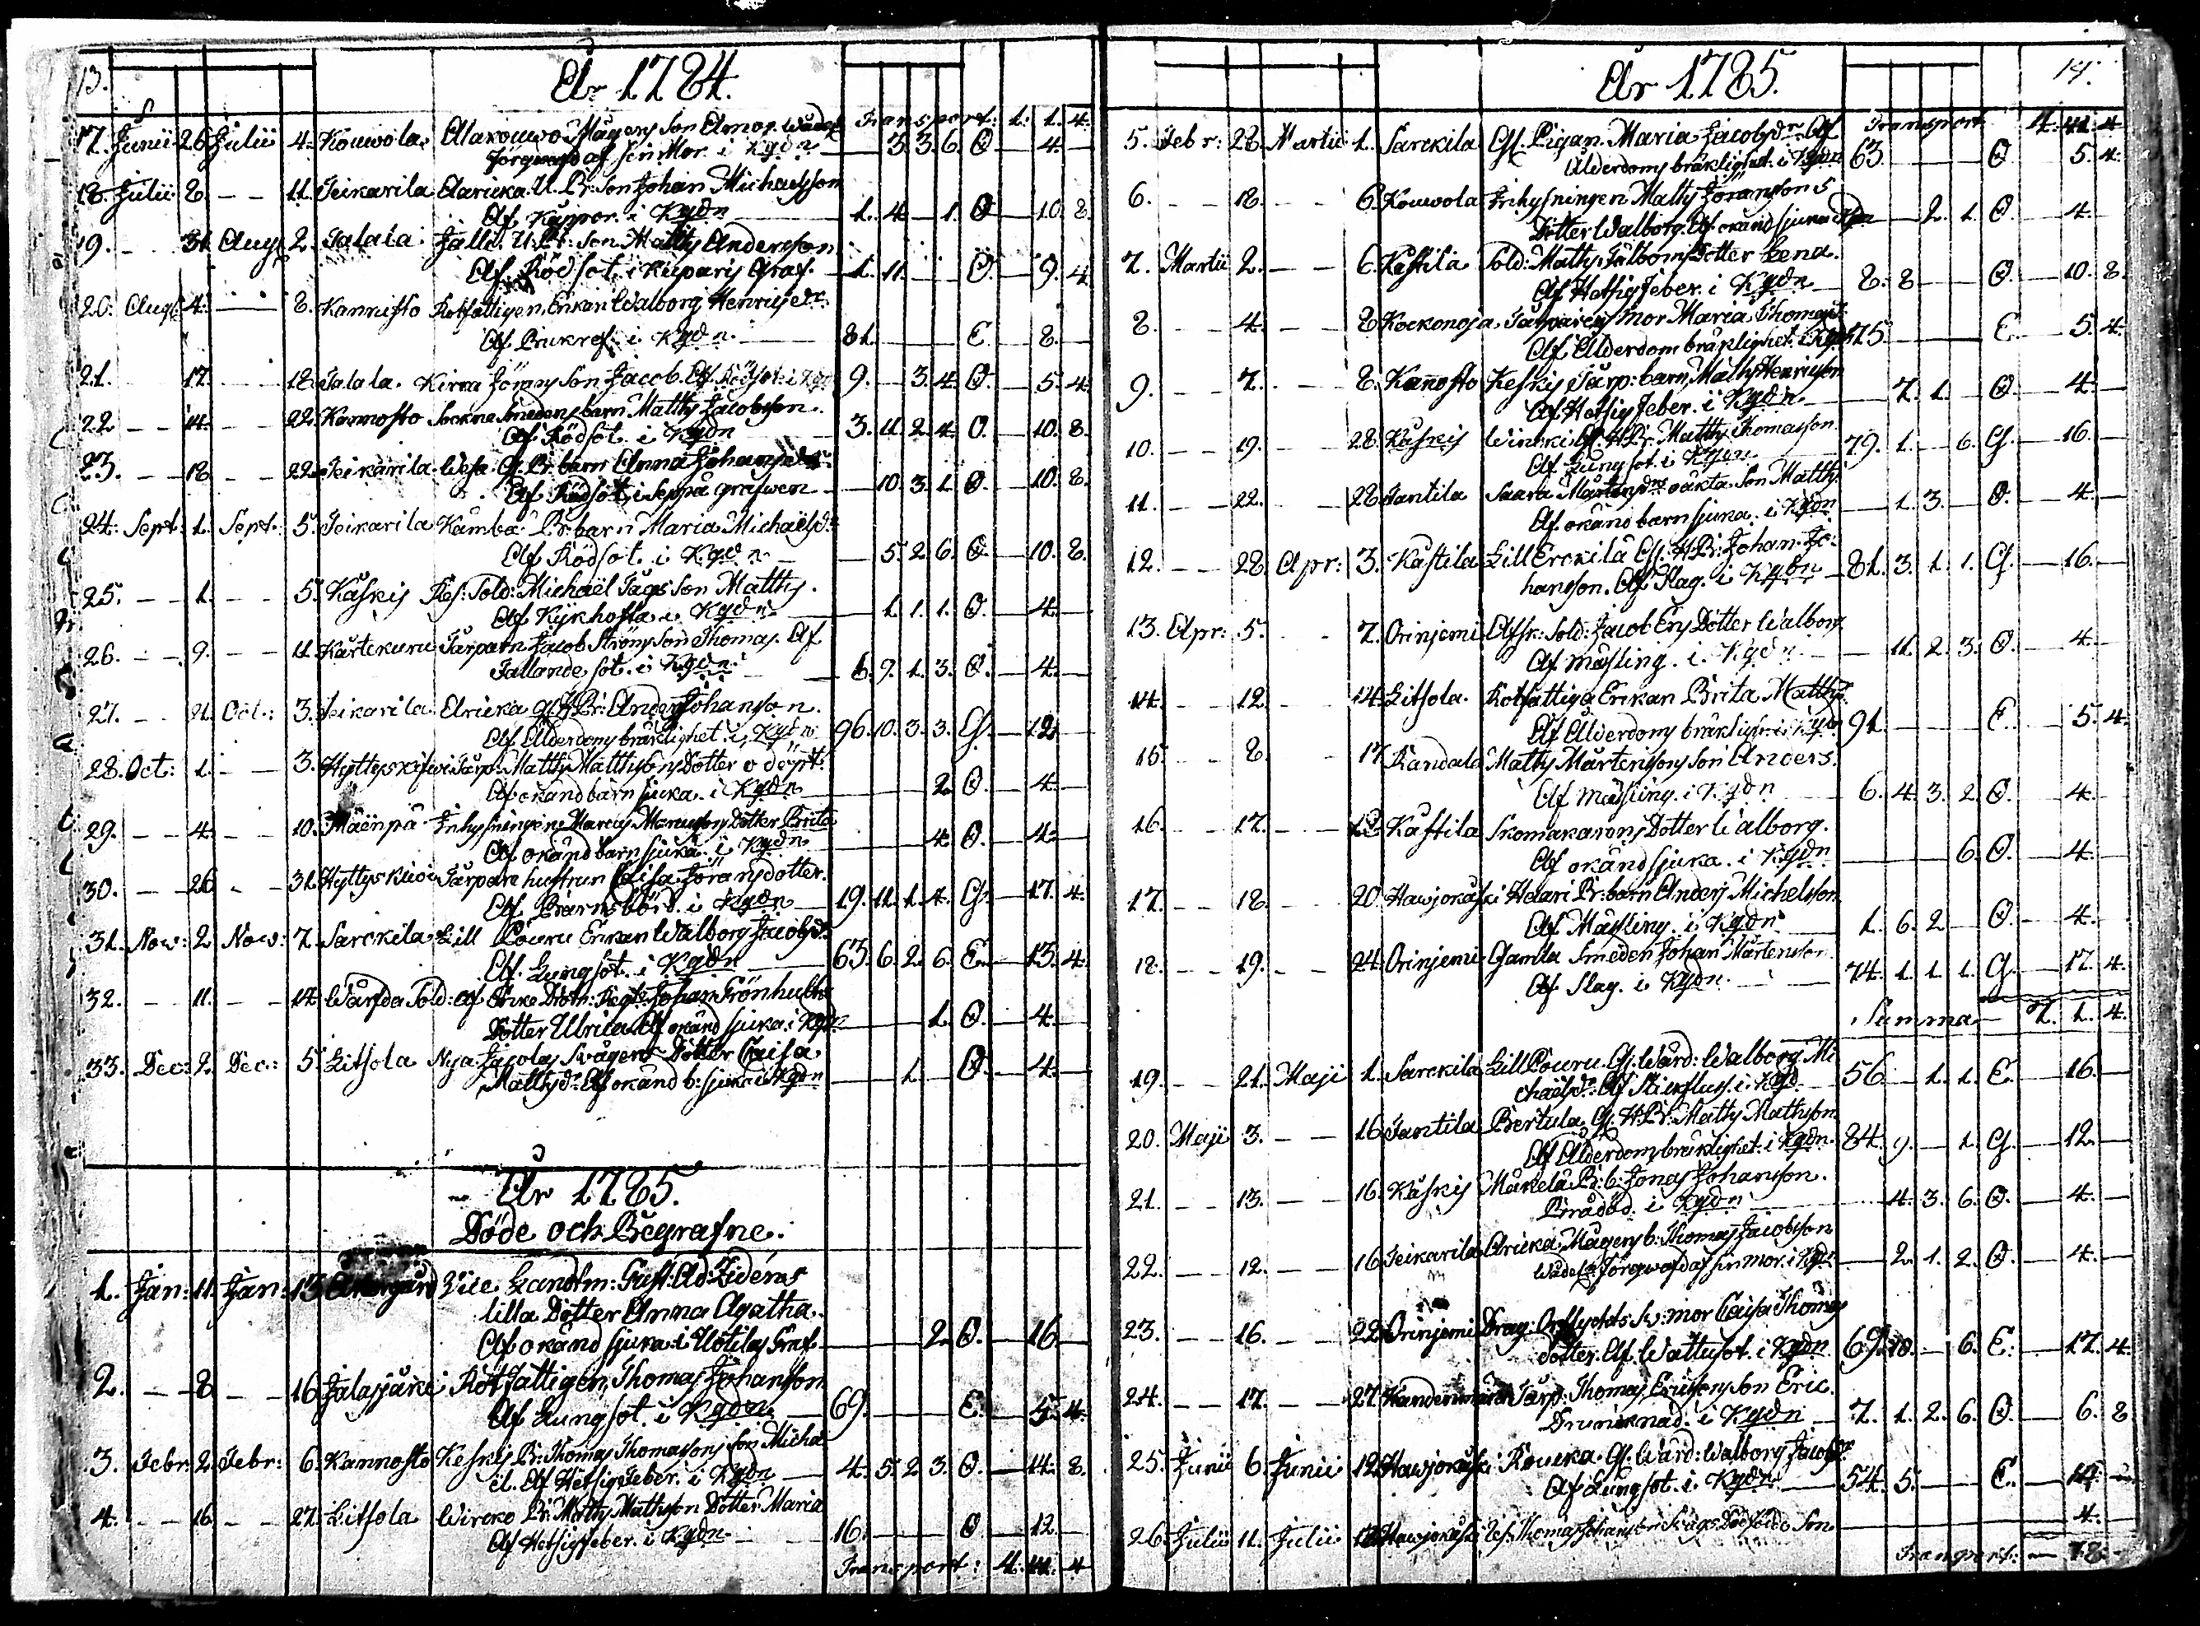 13.
År 1784.
Transport: 1. 1. 4.
17. Junii 26 Julii 4. Kouwola. Alakouwo Mågens Son
förqwafd af sin Mor. i Kgdn 3. 3. 6. O. 4.
18. Julii 8. 11. Teikarila U. Br: Son Johan Michaelsson
Af Kåppor. i Kgdn 1. 4. 1. O 10. 8.
19. 31. Aug: 2. Talala. U. Br: Son Matths Andersson
Af Rödsot. i Graf. 1. 11. O. 9. 4.
20. Aug: 4. 8. Kannisto Rotfattigen, Enkan Walborg Henricsdr.
Af i Kgdn. 81. E. 8.
21. 17. 18. Talala. Kirra Jörans Son Jacob. Af Rödsot. i Kgd 9. 3. 4. O. 5. 4.
22. 14. 22. Kannosto Sockne Smedens barn Matths Jacobsson.
Af Rödsot. i Kgdn 3. 11. 2. 4. O. 10. 8.
23. 18. 22. Teikarila barn Anna Johansdr.
Af Rödsot. i Seppä grafwen 10. 3. 1. O. 10. 8.
24. Sept: 1. Sept: 5. Teikarila Kämbä Br: barn Maria Michaelsdr.
Af Rödsot. i Kgdn 5. 2. 6. O. 10. 8.
25. 1. 5. Käskis Sold: Michaël Tags Son Matths.
Af Kykhosta. i Kgdn 1. 1. 1. O. 4.
26. 9. 11. Kärtekuru Jacob Ströms Son Thomas. Af
Fallande sot. i Kgdn. 6. 9. 1. 3. O. 4.
27. 21. Oct: 3. Teikarila Anders Johanson.
Af Ålderdoms bräcklighet. i Kgdn 96. 10. 3. 3. G. 12.
28. Oct: 1. 3. Torp: Matths Matthsons Dotter o döpt.
Af okänd barn sjuka. i Kgdn 2. O. 4.
29. 4. 10. Mäenpä Inhysningens Dotter Brita
Af okänd barn sjuka. i Kgdn 4. O. 4.
30. 26. 31. Torpare hustrun Caisa Jöransdotter.
Af Barns börd. i Kgdn 19. 11. 1. 4. G. 17. 4.
31. Now: 2. Now: 7. Sarckila Lill Pouru Enkan Walborg Jacobsdr.
Af Lungsot. i Kgdn 63. 6. 2. 6. E. 13. 4.
32. 11. 14. Sold: af Johan Grönhults
Dotter Ulrica. Af okänd sjuka. i Kgdn 1. O. 4.
33. Dec: 2. Dec: 5. Litsola Nya Jacola Swågers Dotter Caisa
Matthsdr. Af okänd b: sjuka. i Kgdn 1. O. 4.
År 1785.
Döde och Begrafne.
1. Jan: 11. Jan: 13. Vice Landsm: Gust: Ad: Lidens
lilla Dotter Anna Agatha.
Af okänd sjuka. i Uotilas Graf. 2. O. 16.
2. 8. 16. Jalasjärwi Rotfattigen, Thomas Johansson
Af Lungsot. i Kgdn. 69. E. 5. 4.
3. Febr: 2. Febr: 6. Kannosto Keskis Br: Thomas Thomasons Son Micha
el. Af Hetsig feber. i Kgdn 4. 5. 2. 3. O. 14. 8.
4. 16. 27. Litsola Br: Matths Mathsson Dotter Maria
Af Hetsig feber. i Kgdn. 16. O. 12.
Transport: 4. 11. 4.
År 1785.
14.
Transport 4. 11. 4
5. Febr: 28. Martii 1. Sarckila Gl. Pigan. Maria Jacobsdr. Af
Ålderdoms bräklighet. i Kgdn 63. O 5. 4.
6. 18. 6. Kouwola Inhysningen Matths Jöransson s
Dotter Walborg. Af okänd sjuka. i Kgdn 2. 1. O. 4.
7. Martii 2. 6. Kastila Sold: Maths Dotter Lena.
Af Hetsig feber. i Kgdn 8. 8. O. 10. 8.
8. 4. 8. Kockonoja. Torparens Mor Maria Thomasdr.
Af Ålderdom bräklighet. i Kgdn 75. E. 5. 4.
9. 7. 8. Kanosto Keskis Torp: barn, Maths Henricsson
Af Hetsig feber. i Kgdn. 7. 1. O. 4.
10. 19. 28. Käskis Gl. H. Br. Matths Thomasson.
Af Lungsot. i Kgdn. 79. 1. 6. G. 16.
11. 22. 28. Tantila Saara Mårtensdr. oäkta Son Matths
Af okänd barn sjuka. i Kgdn 1. 3. O. 4.
12. 28. Apr: 3. Kastila Lill Erckilä Gl. H. Br: Johan Jo-
hansson. Af Slag. i Kgdn 81. 3. 1. 1. G. 16.
13. Apr: 5. 7. Orinjemi Afsk: Sold: Jacob Ens Dotter Walborg
Af mässling. i. Kgdn 11. 2. 3. O. 4.
14. 12. 14. Litsola. Rotfattiga Enkan Brita Matthsdr.
Af Ålderdoms bräkligh: i Kgdn 91. E. 5. 4.
15. 8. 17. Randala Maths Mårtensons Son Anders.
Af mässling. i Kgdn 6. 4. 3. 2. O. 4.
16. 17. Kastila Skomakarens Dotter Walborg.
Af okänd sjuka. i Kgdn 6. O. 4.
17. 18. 20. Hawjokäski Heari Br: barn Anders Michelsson.
Af Mässling. i Kgdn. 1. 6. 2. O. 4.
18. 19. 24. Orinjemi Gamla Smeden Johan Mårtensson.
Af Slag. i Kgdn. 74. 1. 1. 1. G. 17. 4.
Summa 7. 1. 4.
19. 21. Maji 1. Sarckila Lill Pouru. Gl. Wärd: Walborg Mi
chaelsdr. Af i Kgd 56. 1. 1. E. 16.
20. Maji 3. 16. Tantila Bertula Gl. H. Br: Maths Mathsson.
Af Ålderdoms bräklighet. i Kgdn. 84. 9. 1. G. 12.
21. 13. 16. Käskis Mäkelä B: b: Jonas Johansson.
Brådöd. i Kgdn 4. 3. 6. O. 4.
22. 12. 16. Teikarila Mågens b: Thomas Jacobsson
förqwafd af sin mor. i Kgdn 2. 1. 2. O. 4.
23. 16. 22. Orinjemi Drag: mor Caisa Thomas
dotter. Af Wattusot. i Kgdn 69. 10. 6. E. 17. 4.
24. 17. 27. Torp: Thomas Ericsons Son Eric.
Drunknad. i Kgdn 7. 1. 2. 6. O. 6. 8.
25. Junii 6. Junii 12. Hawjokäski Gl. Wärd: Walborg Jacobsdr.
Af Lungsot. i. Kgdn. 54. 5. E. 14.
26. Julii 11. Julii Hawjokäski Thomas Dödfödde Son 4.
Transport: 78.